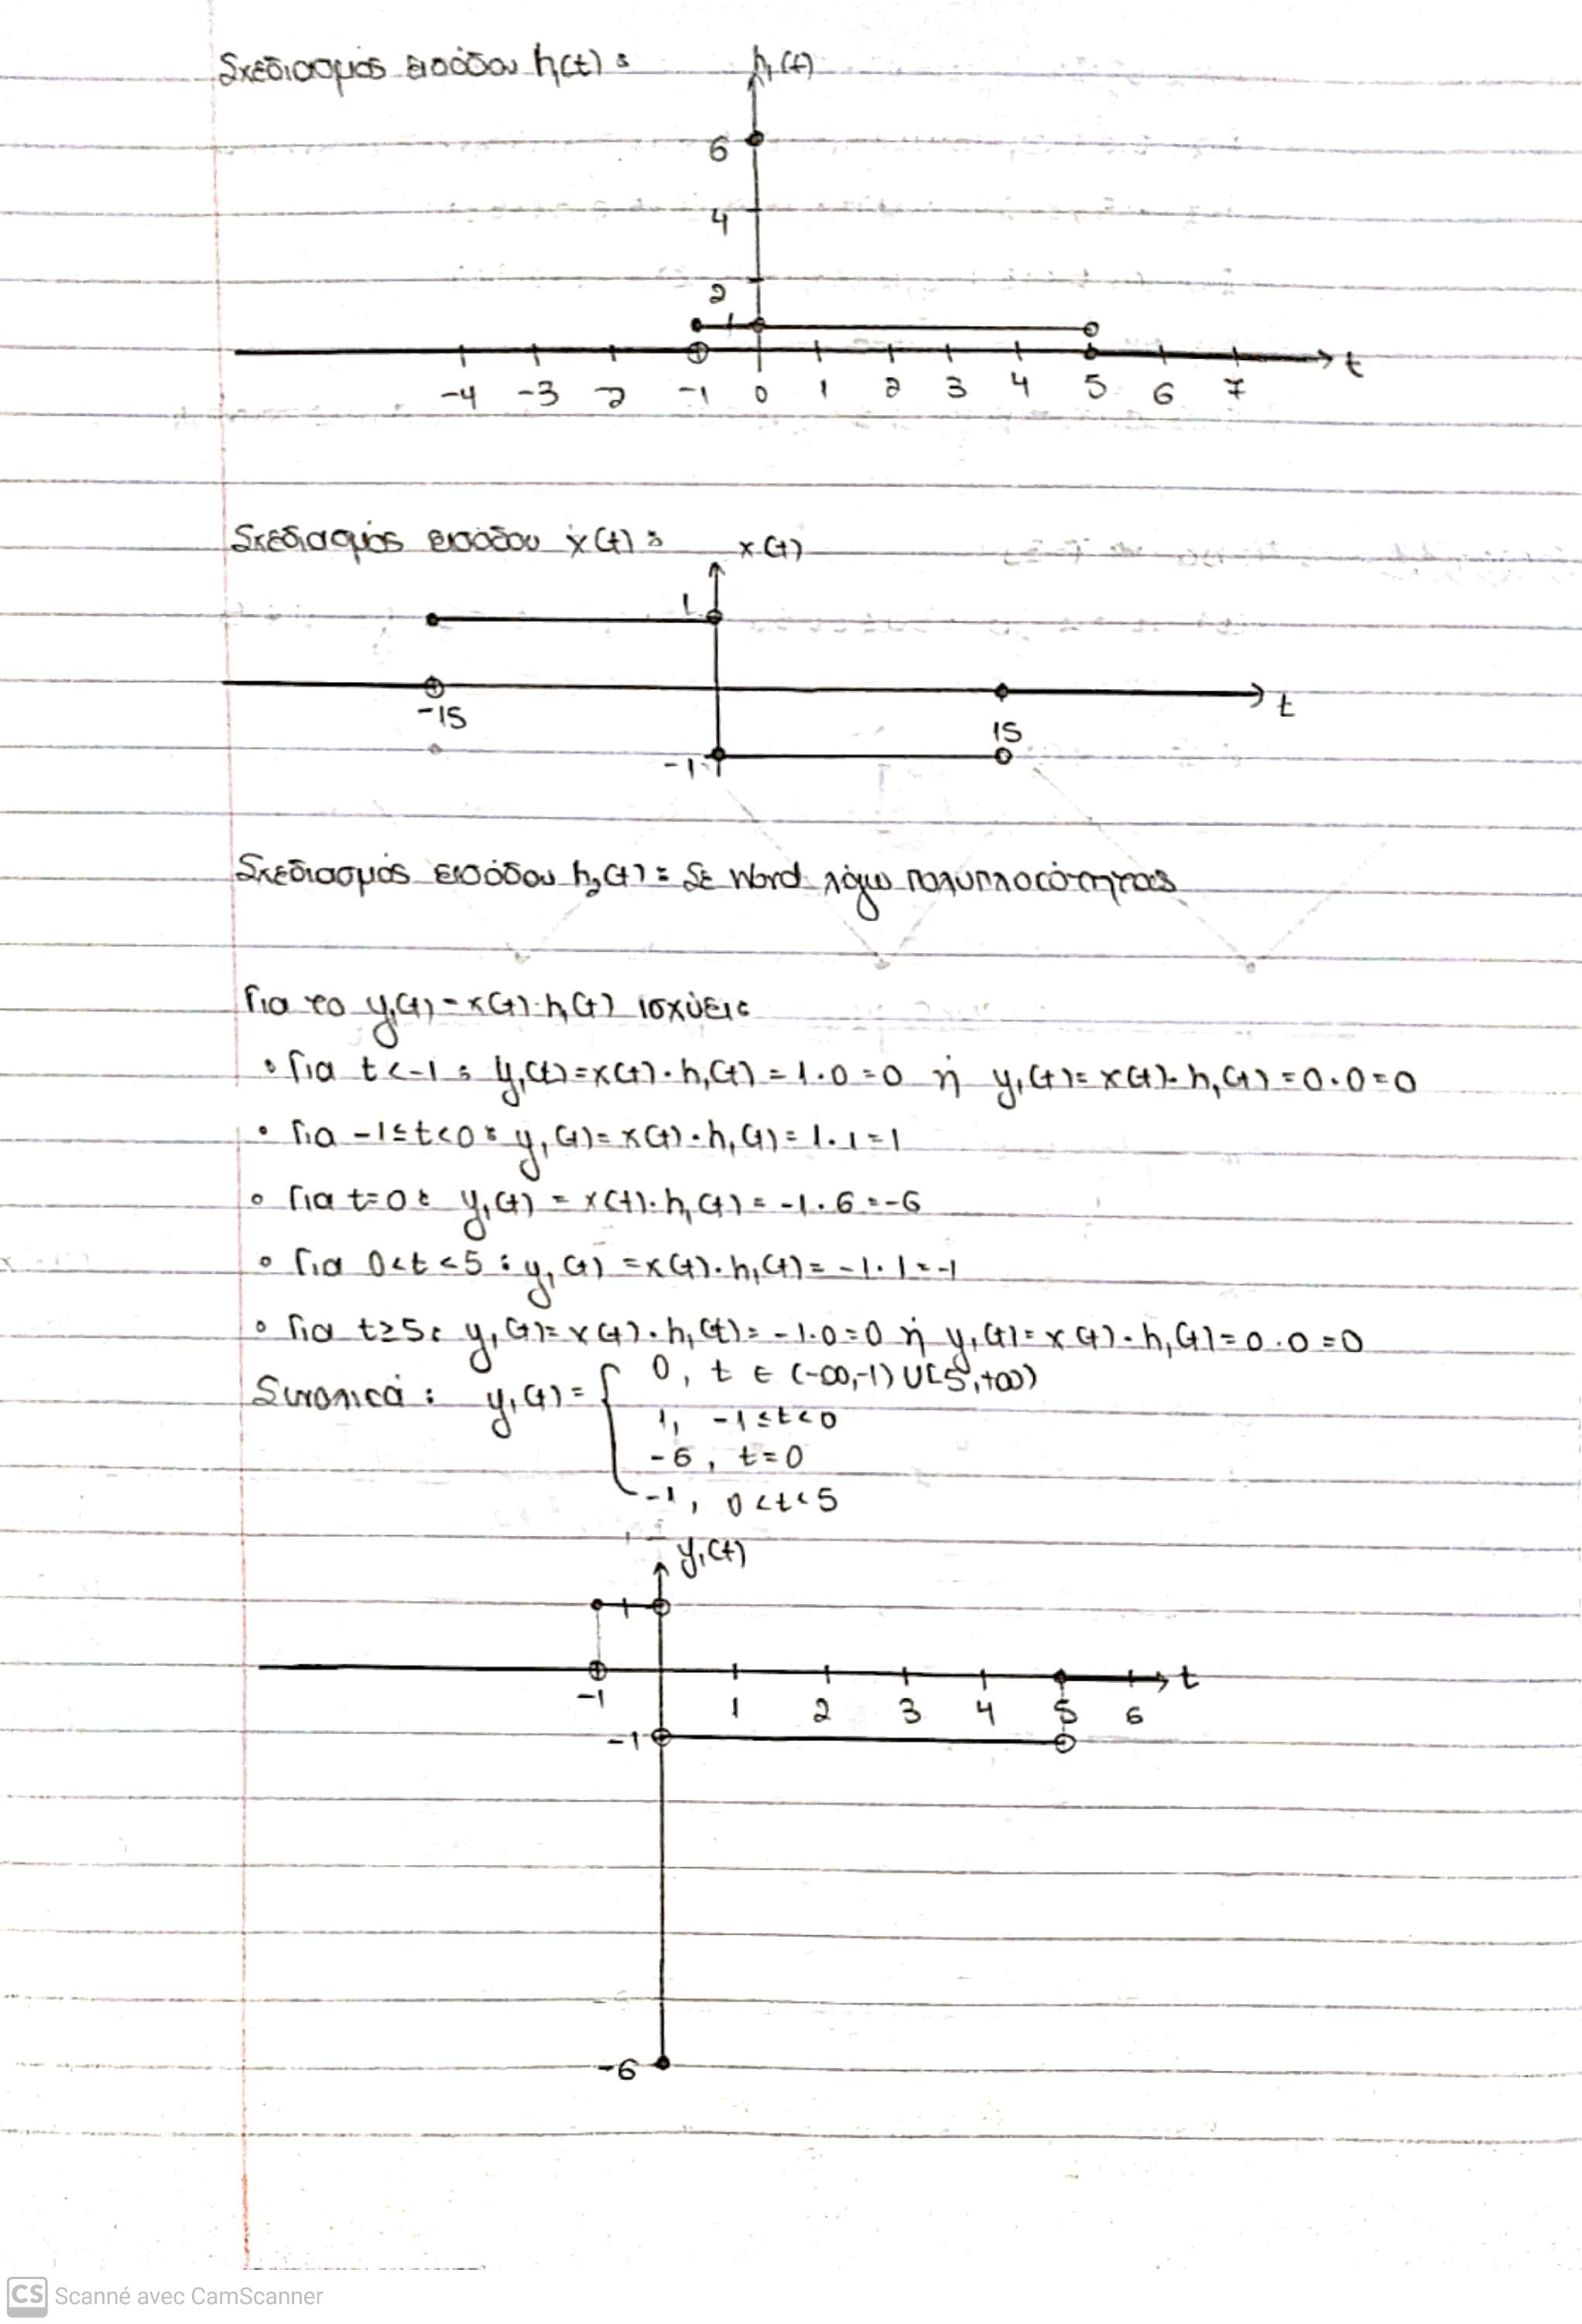 Σχεδιασμός εισόδου h₁(t) :
h₁(t)
6
4
2
1
t
-4 -3 -2 -1 0 1 2 3 4 5 6 7
Σχεδιασμός εισόδου x(t) :
x(t)
1
t
-15
15
-1
Σχεδιασμός εισόδου h₂(t) : Σε Word λόγω πολυπλοκότητας
Για το y₁(t) = x(t)·h₁(t) ισχύει:
• Για t<-1 : y₁(t)=x(t)·h₁(t)=1·0=0 ή y₁(t)=x(t)·h₁(t)=0·0=0
• Για -1≤t<0 : y₁(t)=x(t)·h₁(t)=1·1=1
• Για t=0 : y₁(t)=x(t)·h₁(t)=-1·6=-6
• Για 0<t<5 : y₁(t)=x(t)·h₁(t)=-1·1=-1
• Για t≥5 : y₁(t)=x(t)·h₁(t)=-1·0=0 ή y₁(t)=x(t)·h₁(t)=0·0=0
Συνολικά : y₁(t)= { 0, t ∈ (-∞,-1)∪[5,+∞)
1, -1≤t<0
-6, t=0
-1, 0<t<5
y₁(t)
1
t
-1 1 2 3 4 5 6
-1
-6
CS Scanné avec CamScanner